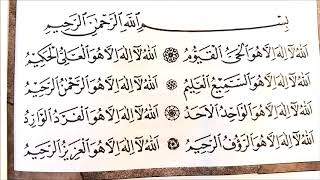 بِسْمِ اللهِ الرَّحْمٰنِ الرَّحِيْمِ
اَللهُ لَا اِلٰهَ اِلَّا هُوَ الْحَيُّ الْقَيُّوْمُ ۞ اَللهُ لَا اِلٰهَ اِلَّا هُوَ الْعَلِيُّ الْحَكِيْمُ
اَللهُ لَا اِلٰهَ اِلَّا هُوَ السَّمِيْعُ الْعَلِيْمُ ۞ اَللهُ لَا اِلٰهَ اِلَّا هُوَ الرَّحْمٰنُ الرَّحِيْمُ
اَللهُ لَا اِلٰهَ اِلَّا هُوَ الْوَاحِدُ الْاَحَدُ ۞ اَللهُ لَا اِلٰهَ اِلَّا هُوَ الْفَرْدُ
اَللهُ لَا اِلٰهَ اِلَّا هُوَ الرَّؤُفُ الرَّحِيْمُ ۞ اَللهُ لَا اِلٰهَ اِلَّا هُوَ الْعَزِيْزُ الرَّحِيْمُ